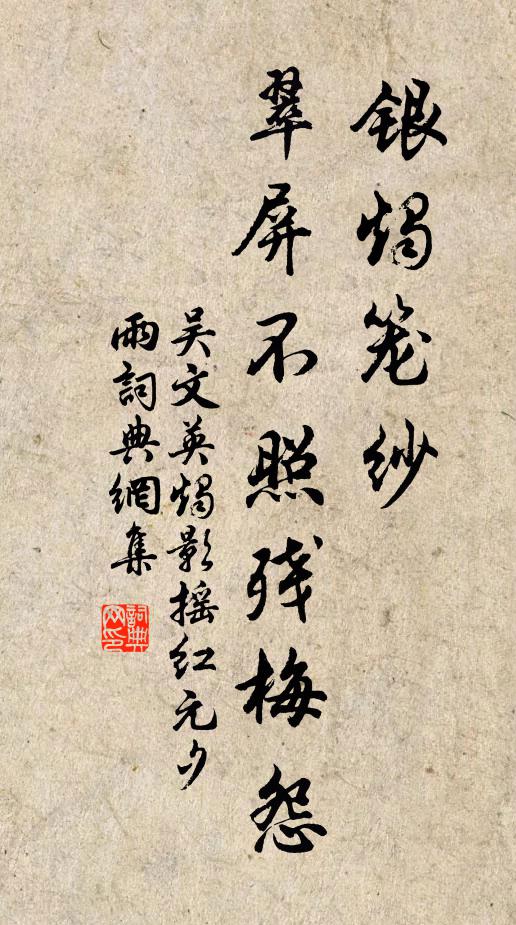 银烛笼纱
翠屏不照残梅怨
吴文英烛影摇红元夕
雨詞典網集
詞典网印